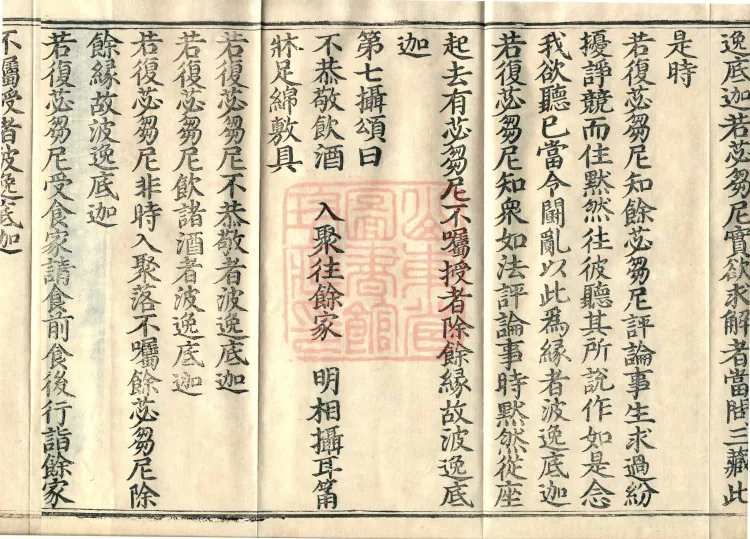 逸底迦若苾芻尼實欲求解者當問三藏此
是時
若復苾芻尼知餘苾芻尼評論事生求過紛
擾諍競而住默然往彼聽其所說作如是念
我欲聽已當令鬪亂以此為緣者波逸底迦
若復苾芻尼知眾如法評論事時默然從座
起去有苾芻尼不囑授者除餘緣故波逸底
迦
第七攝頌曰
不恭敬飲酒 入聚往餘家 明相攝耳筩
牀足綿敷具
若復苾芻尼不恭敬者波逸底迦
若復苾芻尼飲諸酒者波逸底迦
若復苾芻尼非時入聚落不囑餘苾芻尼除
餘緣故波逸底迦
若復苾芻尼受食家請食前食後行詣餘家
不囑授者波逸底迦